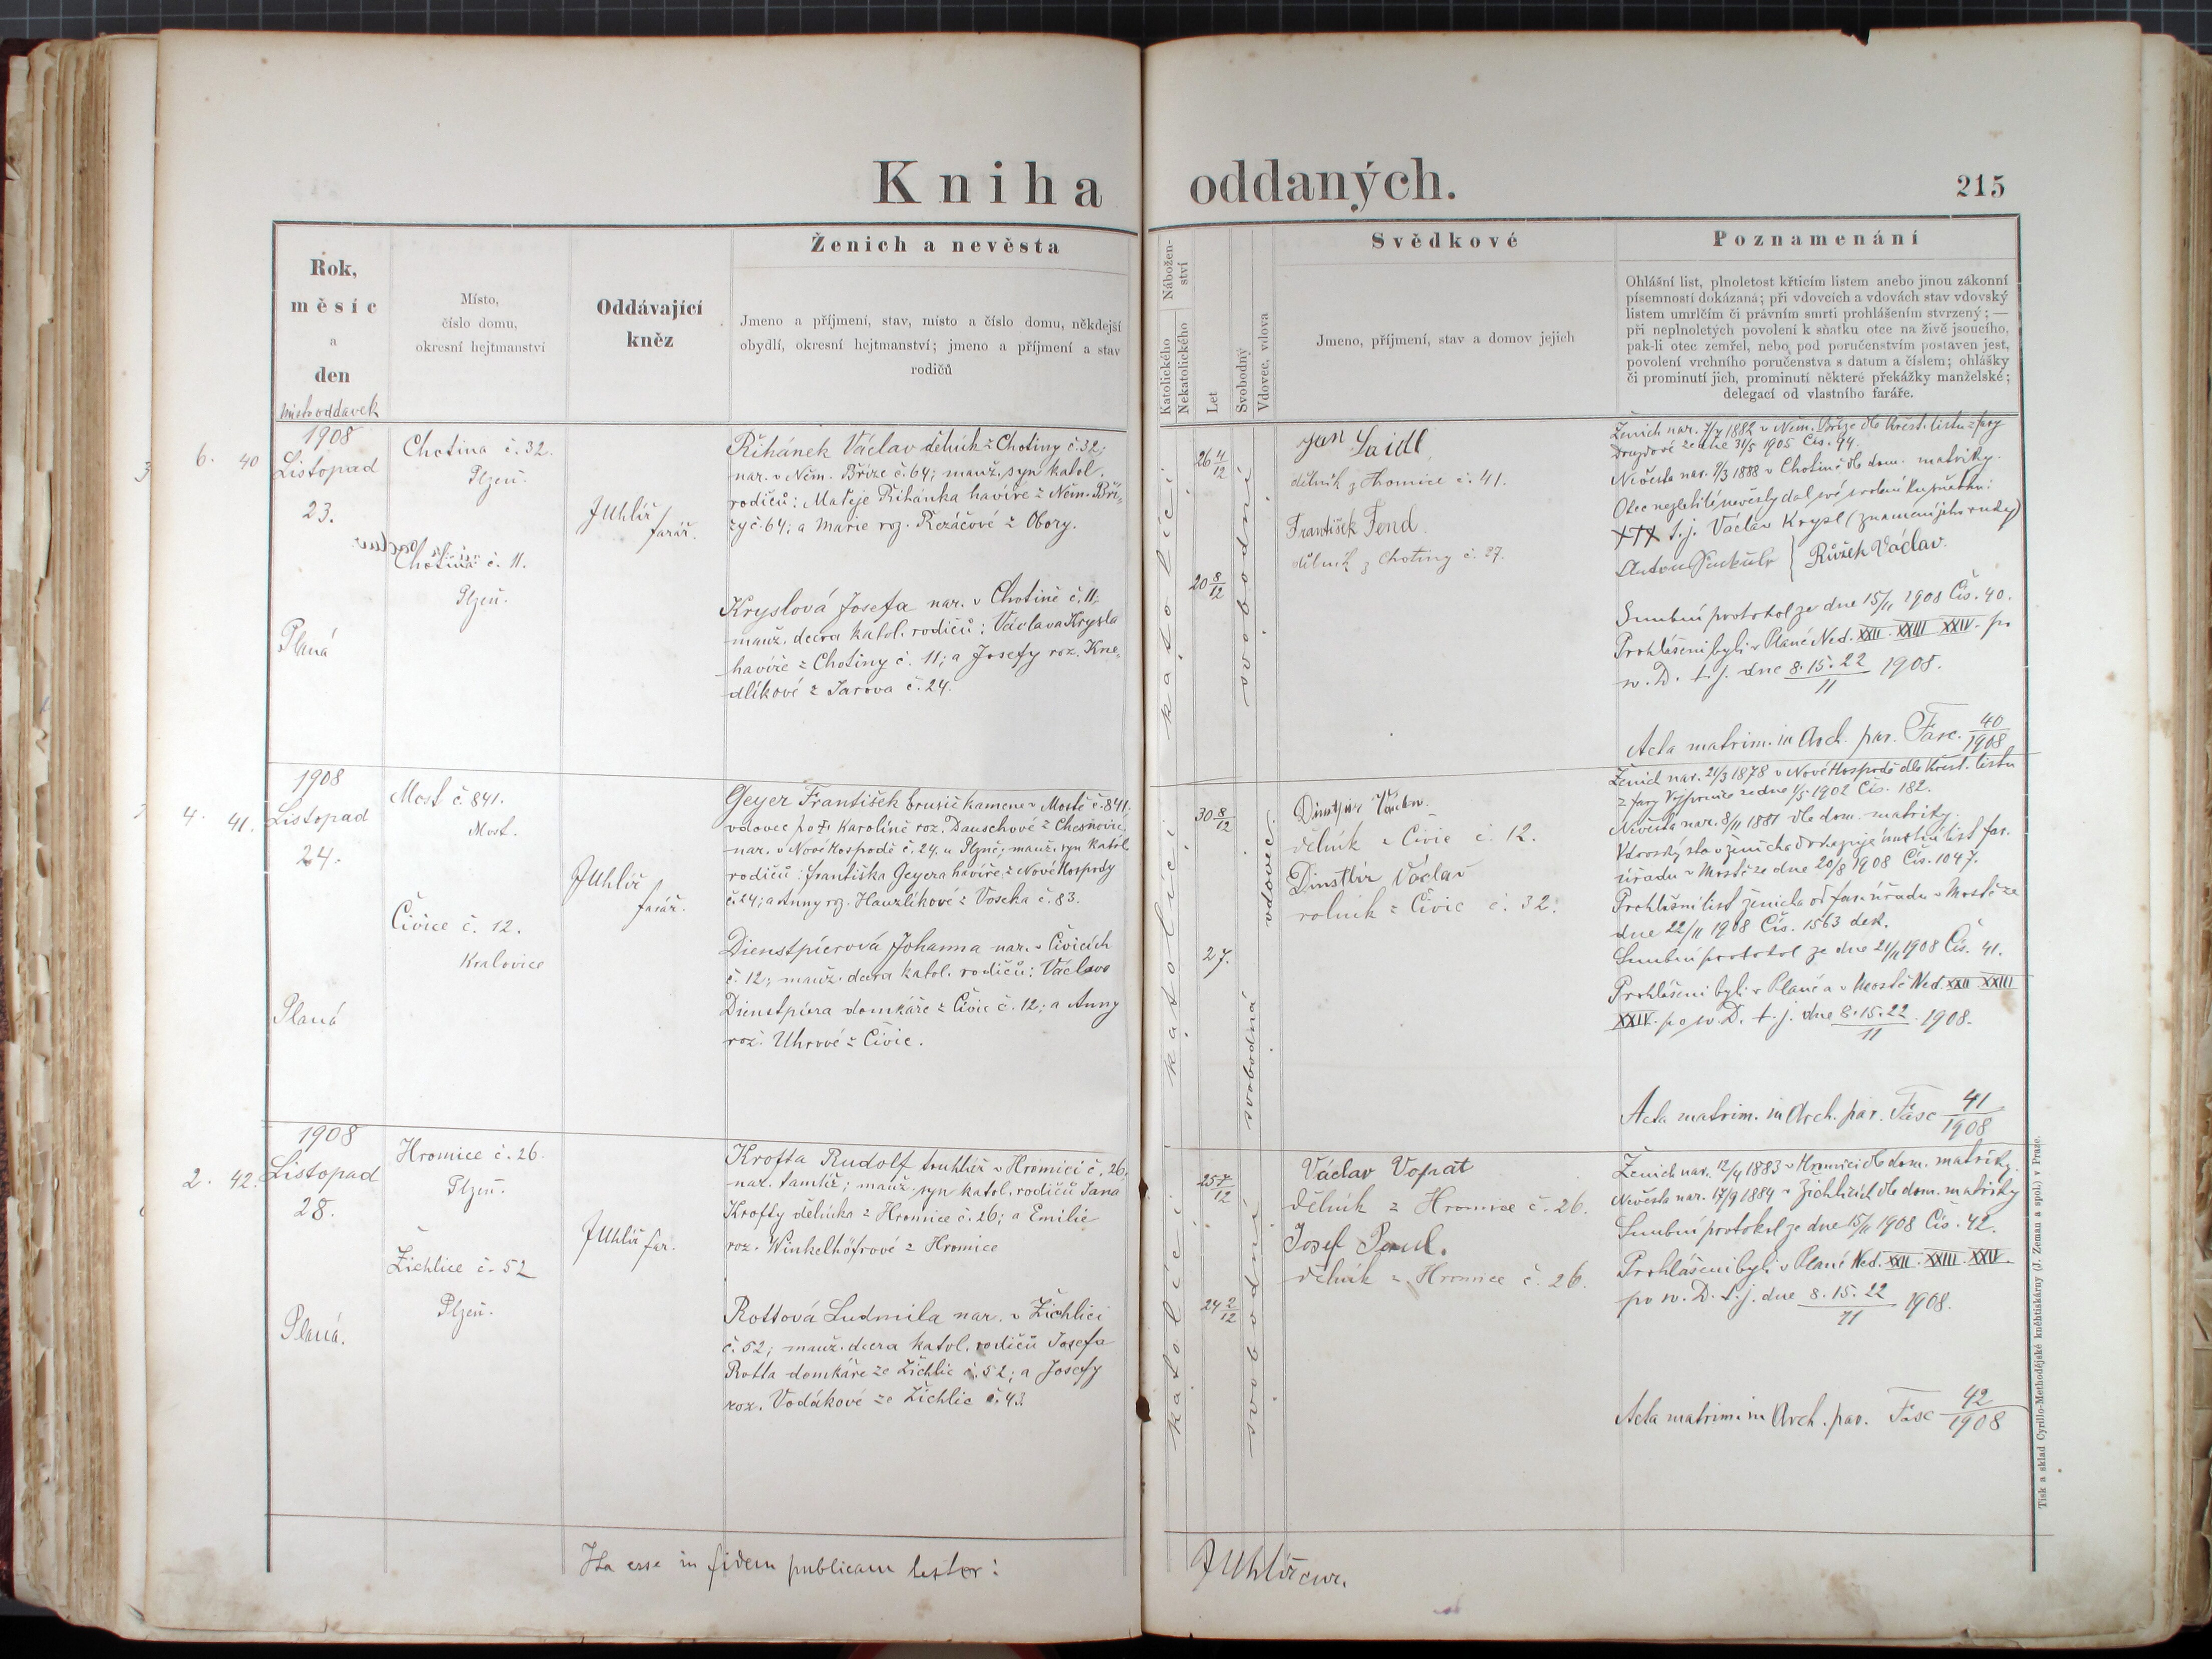 Kniha oddaných.
215
Rok,
měsíc
a
den
místo oddavek
Místo,
číslo domu,
okresní hejtmanství
Oddávající
kněz
Ženich a nevěsta
Jmeno a příjmení, stav, místo a číslo domu, někdejší
obydlí, okresní hejtmanství; jmeno a příjmení a stav
rodičů
Nábožen-
ství
Katolického
Nekatolického
Let
Svobodný
Vdovec, vdova
Svědkové
Jmeno, příjmení, stav a domov jejich
Poznamenání
Ohlášní list, plnoletost křticím listem anebo jinou zákonní
písemností dokázaná; při vdovcích a vdovách stav vdovský
listem umrlčím či právním smrti prohlášením stvrzený; —
při neplnoletých povolení k sňatku otce na živě jsoucího,
pak-li otec zemřel, nebo pod poručenstvím postaven jest,
povolení vrchního poručenstva s datum a číslem; ohlášky
či prominutí jich, prominutí některé překážky manželské;
delegací od vlastního faráře.
6. 40
1908
Listopad
23.
Planá
Chotina č. 32.
Plzeň.
Chotina č. 11.
Plzeň.
JUhlíř
farář.
Řihánek Václav dělník z Chotiny č. 32;
nar. v Něm. Bříze č. 64; manž. syn katol.
rodičů: Matěje Řihánka havíře z Něm. Bří-
zy č. 64; a Marie roz. Řezáčové z Obory.
Kryslová Josefa nar. v Chotině č. 11;
manž. dcera katol. rodičů: Václava Krysla
havíře z Chotiny č. 11; a Josefy roz. Kne-
dlíkové z Jarova č. 24.
katolíci
26 4/12
20 8/12
svobodní
Jan Saidl
dělník z Hromice č. 41.
František Fend
dělník z Chotiny č. 27.
Ženich nar. 7/7 1882 v Něm. Bříze dle křest. listu z fary
Druzdové ze dne 31/5 1905 Čís. 94.
Nevěsta nar. 9/3 1888 v Chotině dle dom. matriky.
Otec nezletilé nevěsty dal své svolení ku sňatku:
+++ t. j. Václav Krysl (znamení jeho ruky)
Růžek Václav.
Snubní protokol ze dne 15/11 1908 Čís. 40.
Prohlášeni byli v Plané Ned. XXII. XXIII XXIV. po
sv. D. t. j. dne 8. 15. 22/11 1908.
Acta matrim. in Arch. par. Fasc. 40/1908
4. 41.
1908
Listopad
24.
Planá
Most č. 841.
Most.
Čivice č. 12.
Kralovice
JUhlíř
farář.
Geyer František brusič kamene v Mostě č. 841.
vdovec po † Karolíně roz. Dauschové z
nar. v Nové Hospodě č. 24. u Plzně; manž. syn katol.
rodičů: Františka Geyera havíře z Nové Hospody
č. 24; a Anny roz. Hauzlíkové z Voseka č. 83.
Dienstpierová Johanna nar. v Čivicích
č. 12; manž. dcera katol. rodičů: Václava
Dienstpiera domkáře z Čivic č. 12; a Anny
roz. Uhrové z Čivic.
katolíci
30 8/12
27.
svobodná
vdovec
Dinstpír Václav.
dělník z Čivic č. 12.
Dinstbír Václav
rolník z Čivic č. 32.
Ženich nar. 21/3 1878 v Nové Hospodě dle křest. listu
z fary Vejprnice ze dne 1/5 1902 Čís. 182.
Nevěsta nar. 8/11 1881 dle dom. matriky.
Vdovský stav ženicha dokazuje úmrtní list far.
úřadu v Mostě ze dne 20/8 1908 Čís. 1047.
Prohlášní list ženicha od far. úřadu v Mostě ze
dne 22/11 1908 Čís. 1563 dek.
Snubní protokol ze dne 21/11 1908 Čís. 41.
Prohlášeni byli v Plané a v Mostě Ned. XXII XXIII
XXIV. po sv. D. t. j. dne 8. 15. 22/11 1908.
Acta matrim. in Arch. par. Fasc 41/1908
2. 42.
1908
Listopad
28.
Planá.
Hromice č. 26.
Plzeň.
Žichlice č. 52
Plzeň.
JUhlíř far.
Krofta Rudolf truhlář v Hromici č. 26,
nar. tamtéž; manž. syn katol. rodičů Jana
Krofty dělníka z Hromice č. 26; a Emilie
roz. Winkelhöfrové z Hromice
Rottová Ludmila nar. v Žichlici
č. 52; manž. dcera katol. rodičů Josefa
Rotta domkáře ze Žichlic č. 52; a Josefy
roz. Vodákové ze Žichlic č. 43.
katolíci
25 7/12
24 2/12
svobodní
Václav Vopat
dělník z Hromice č. 26.
Josef Paul.
dělník z Hromice č. 26.
Ženich nar. 12/4 1883 v Hromici dle dom. matriky.
Nevěsta nar. 17/9 1884 v Žichlicích dle dom. matriky
Snubní protokol ze dne 15/11 1908 Čís. 42.
Prohlášeni byli v Plané Ned. XXII. XXIII. XXIV.
po sv. D. t. j. dne 8. 15. 22/11 1908.
Acta matrim. in Arch. par. Fasc 42/1908
Ita esse in fidem publicam testor:
JUhlíř cur.
Tisk a sklad Cyrillo-Methodějské knihtiskárny (J. Zeman a spol.) v Praze.